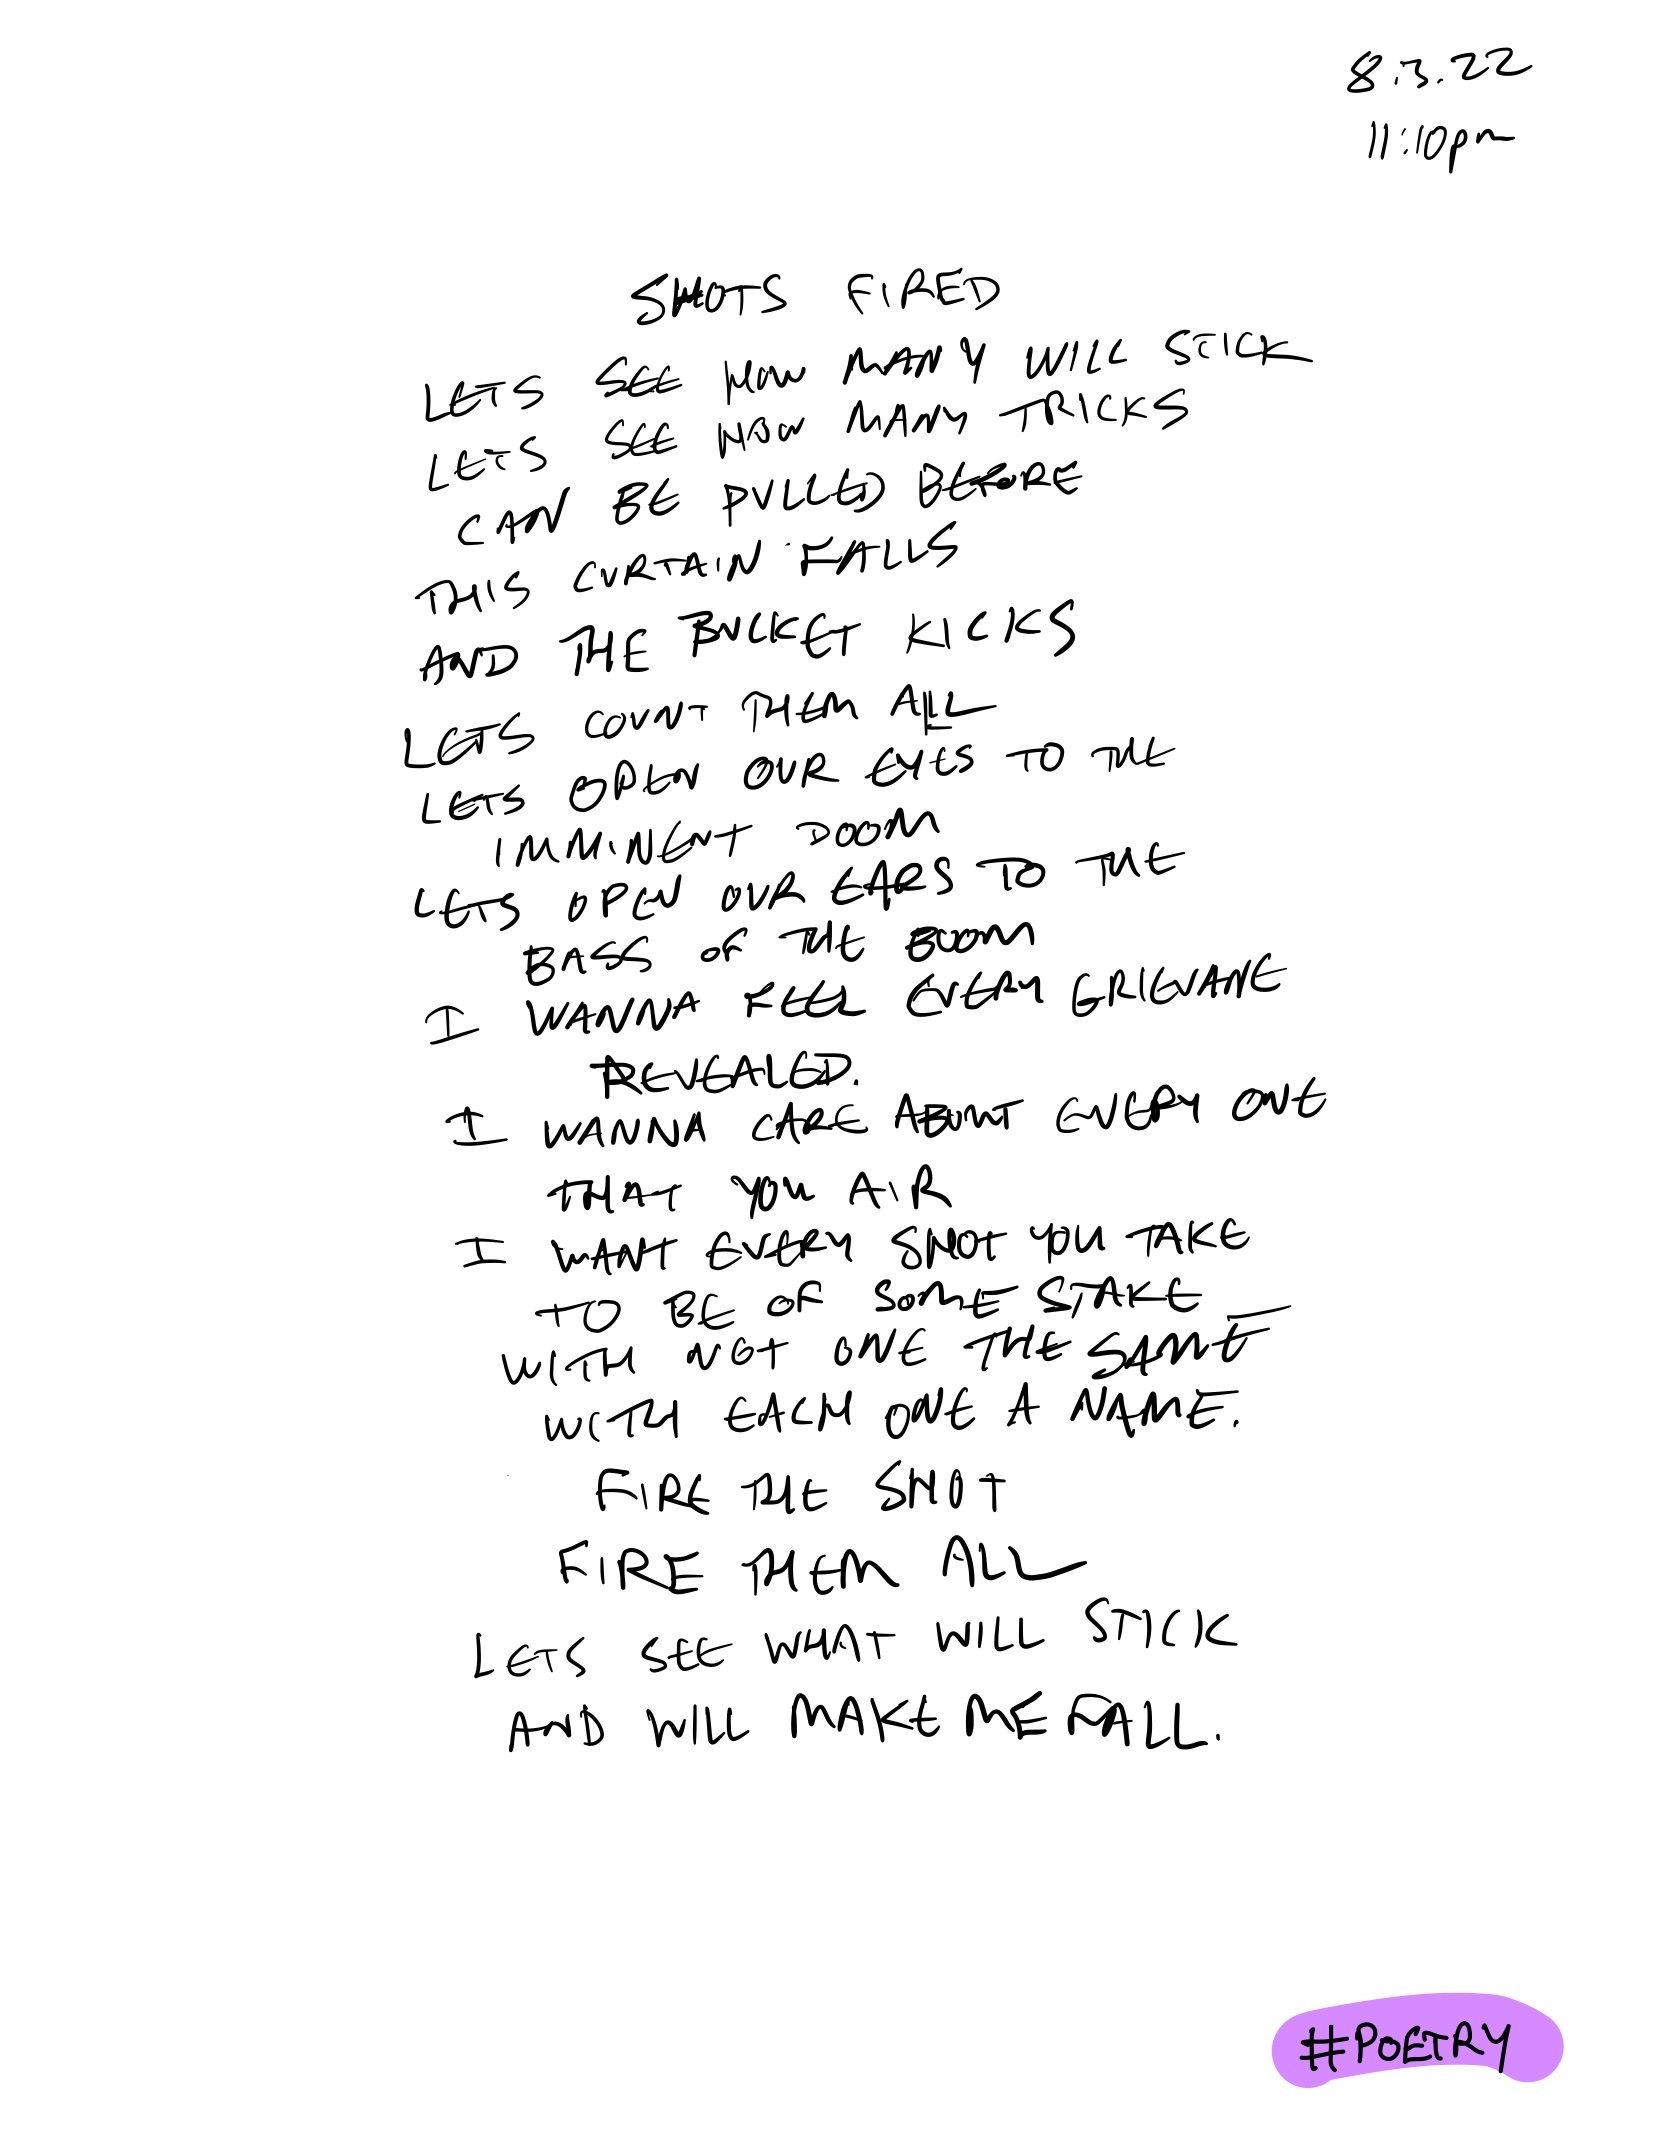 8.3.22
11:10pm
SHOTS FIRED
LETS SEE HOW MANY WILL STICK
LETS SEE HOW MANY TRICKS
CAN BE PULLED BEFORE
THIS CURTAIN FALLS
AND THE BUCKET KICKS
LETS COUNT THEM ALL
LETS OPEN OUR EYES TO THE
IMMINENT DOOM
LETS OPEN OUR EARS TO THE
BASS OF THE BOOM
I WANNA FEEL EVERY GRIEVANE
REVEALED.
I WANNA CARE ABOUT EVERY ONE
THAT YOU AIR
I WANT EVERY SHOT YOU TAKE
TO BE OF SOME STAKE
WITH NOT ONE THE SAME
WITH EACH ONE A NAME.
FIRE THE SHOT
FIRE THEM ALL
LETS SEE WHAT WILL STICK
AND WILL MAKE ME FALL.
#POETRY